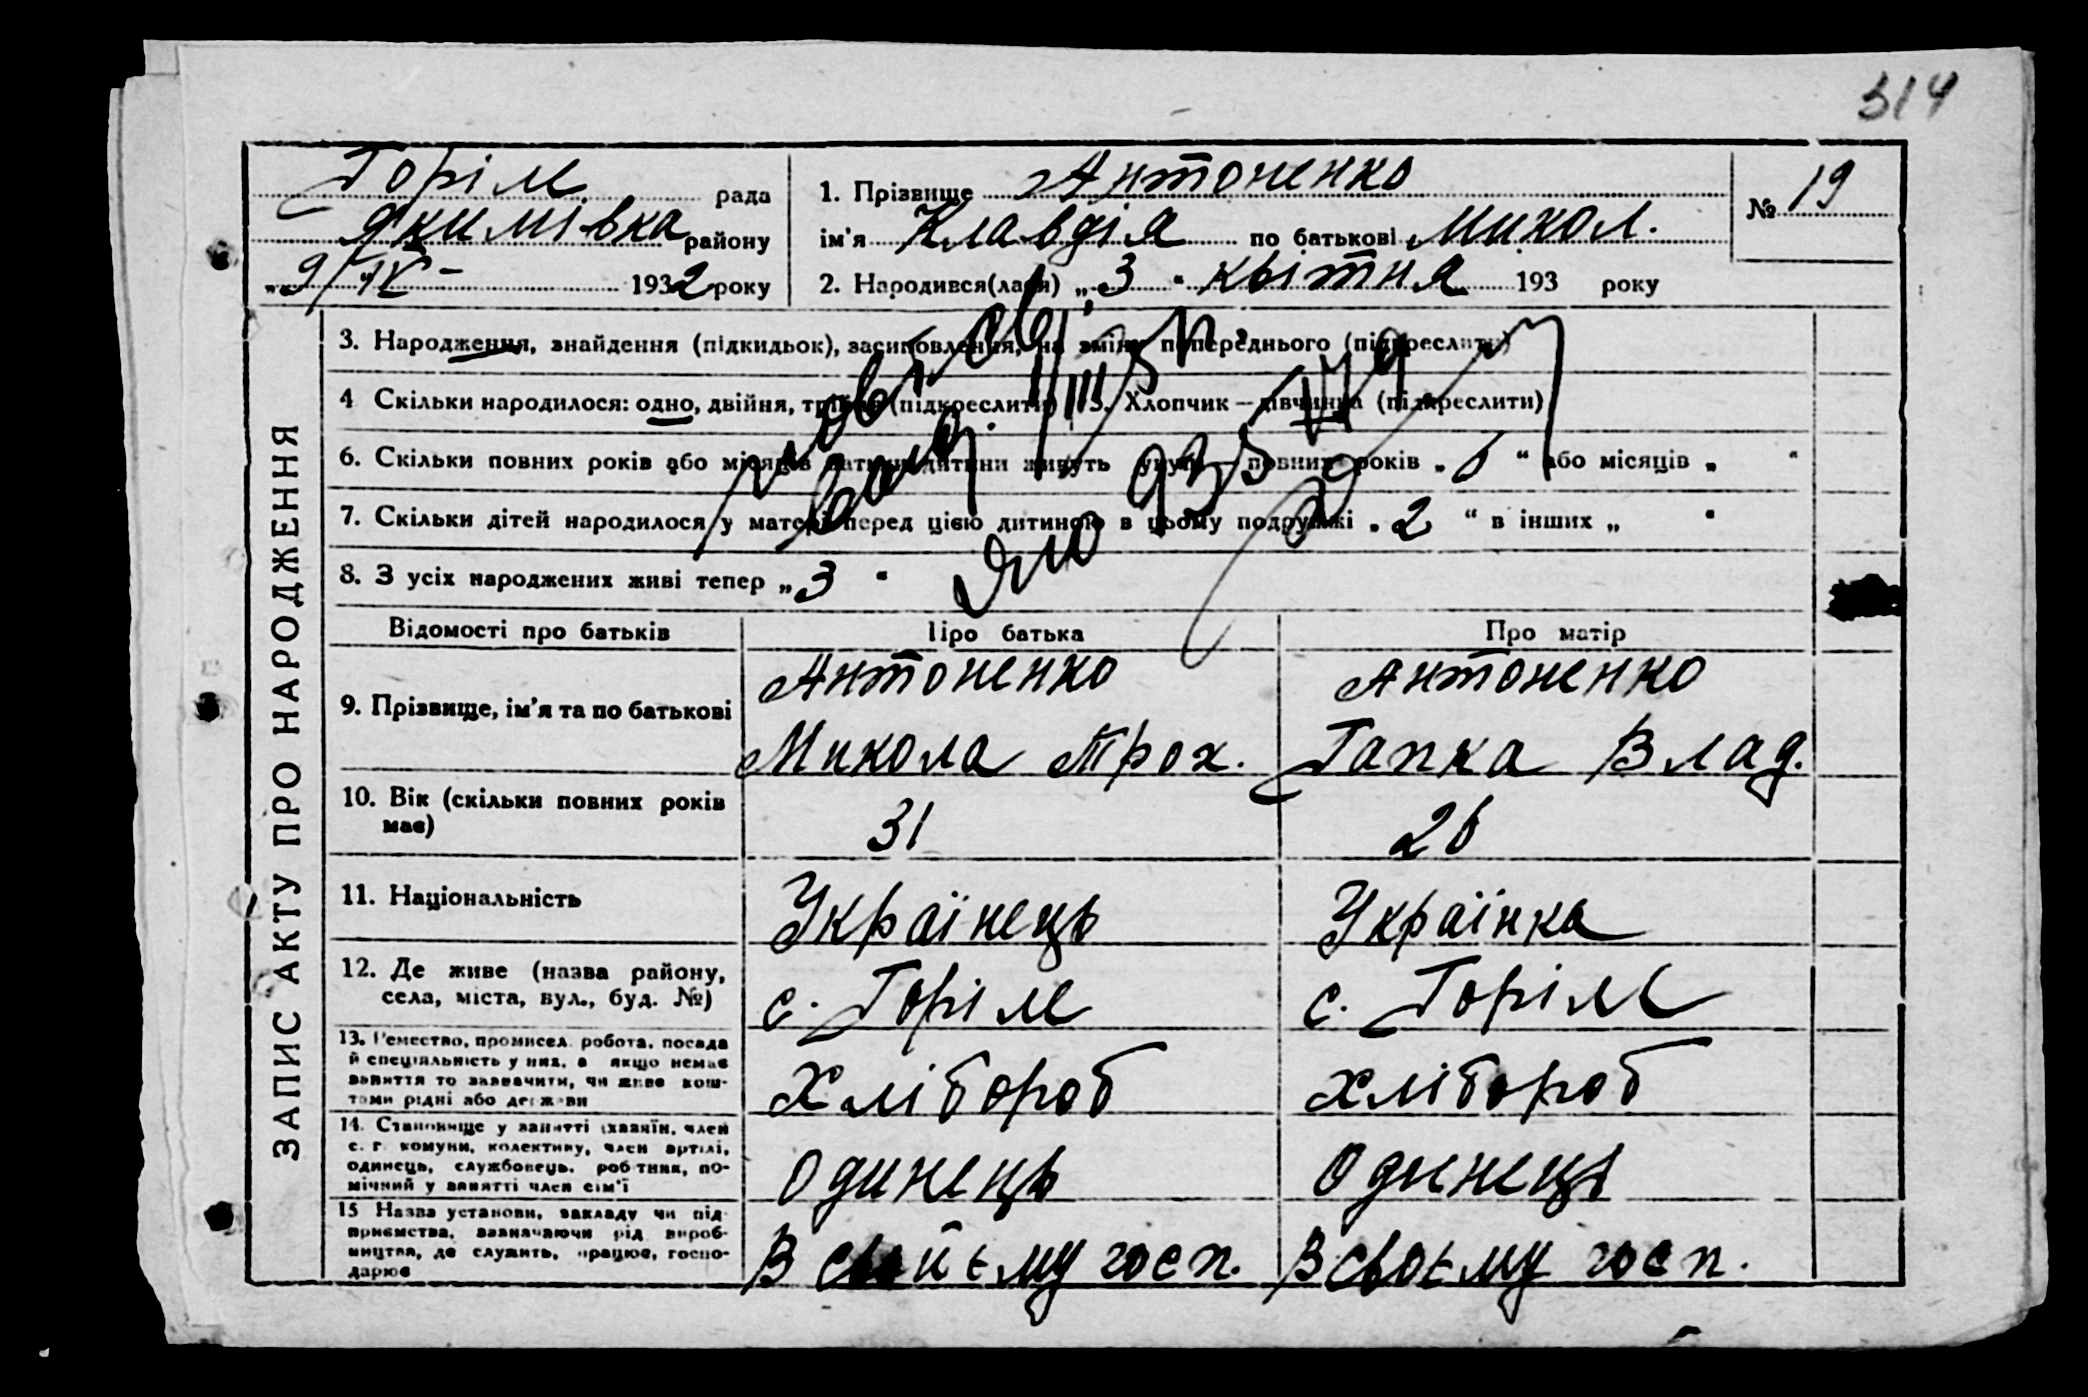 314
Горіле рада
Якимівка району
„ 9/IV - 1932 року
1. Прізвище Антоненко
ім'я Клавдія по батькові Микол.
2. Народився(лася) „ 3 " квітня 193 року
№ 19
ЗАПИС АКТУ ПРО НАРОДЖЕННЯ
3. Народження, знайдення (підкидьок), засиновлення, на зміну попереднього (підкреслити)
4 Скільки народилося: одно, двійня, трійня (підкреслити) 5. Хлопчик — дівчинка (підкреслити)
6. Скільки повних років або місяців батьки дитини живуть укупі повних років „ 6 " або місяців „ "
7. Скільки дітей народилося у матері перед цією дитиною в цьому подружжі „ 2 " в інших „ "
8. З усіх народжених живі тепер „ 3 "
Відомості про батьків Про батька Про матір
9. Прізвище, ім'я та по батькові
Антоненко
Микола Трох.
Антоненко
Гапка Влад.
10. Вік (скільки повних років має)
31
26
11. Національність
Українець
Українка
12. Де живе (назва району,
села, міста, вул., буд. №)
с. Горіле
с. Горіле
13. Ремество, промисел. робота, посада
й спеціяльність у них, а якщо немає
заняття то зазначити, чи живе кош-
тами рідні або держави
Хлібороб
Хлібороб
14. Становище у занятті (хазяїн, член
с. г. комуни, колективу, член артілі,
одинець, службовець, робітник, по-
мічний у занятті член сім'ї
Одинець
Одинець
15 Назва установи, закладу чи під-
приємства, зазначаючи рід вироб-
ництва, де служить, працює, госпо-
дарює
В свойєму госп.
В своєму госп.